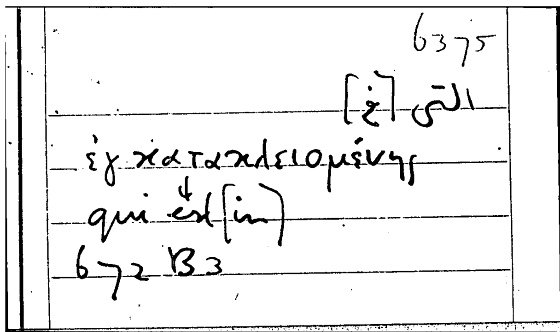 6375
التى [فى]
ἐγκατακλειομένης
qui est [in]
672 B3